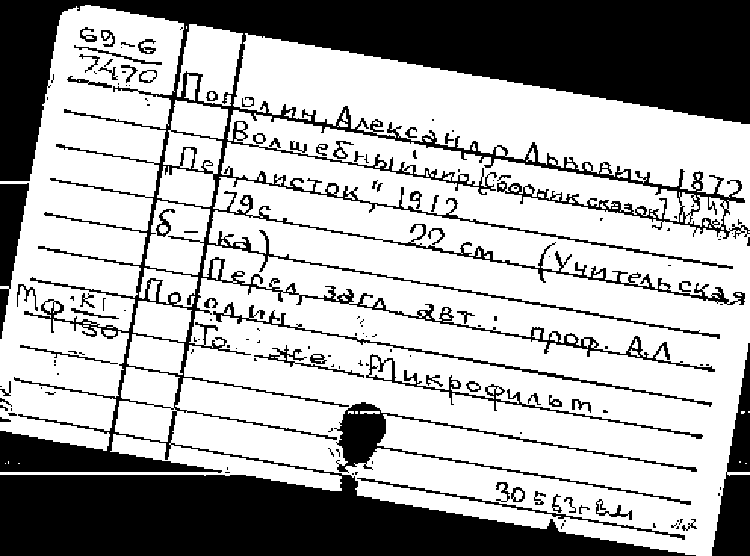 69-6
7470
Погодин, Александр Львович, 1872
Волшебный мир. [Сборник сказок].
"Пед. листок", 1912.
79 с. 22 см. (Учительская
б-ка).
Перед загл. авт.: проф. А.Л.
Погодин.
Мф К1
150
То же. Микрофильм.